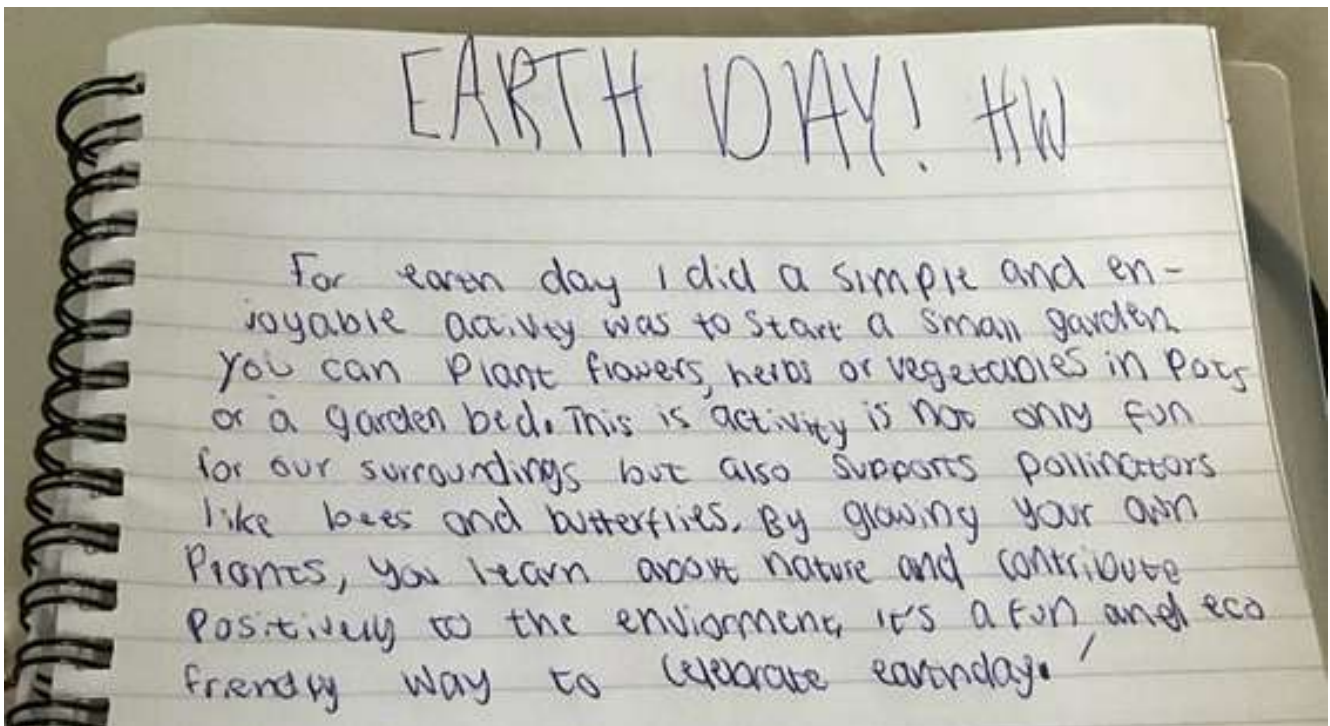 EARTH DAY! HW
For earth day I did a simple and en-
joyable activity was to start a small garden.
You can plant flowers, herbs or vegetables in pots
or a garden bed. This is activity is not only fun
for our surroundings but also supports pollinators
like bees and butterflies. By glowing your own
plants, you learn about nature and contribute
positively to the enviorment, it's a fun, and eco
friendly way to celebrate earthday.